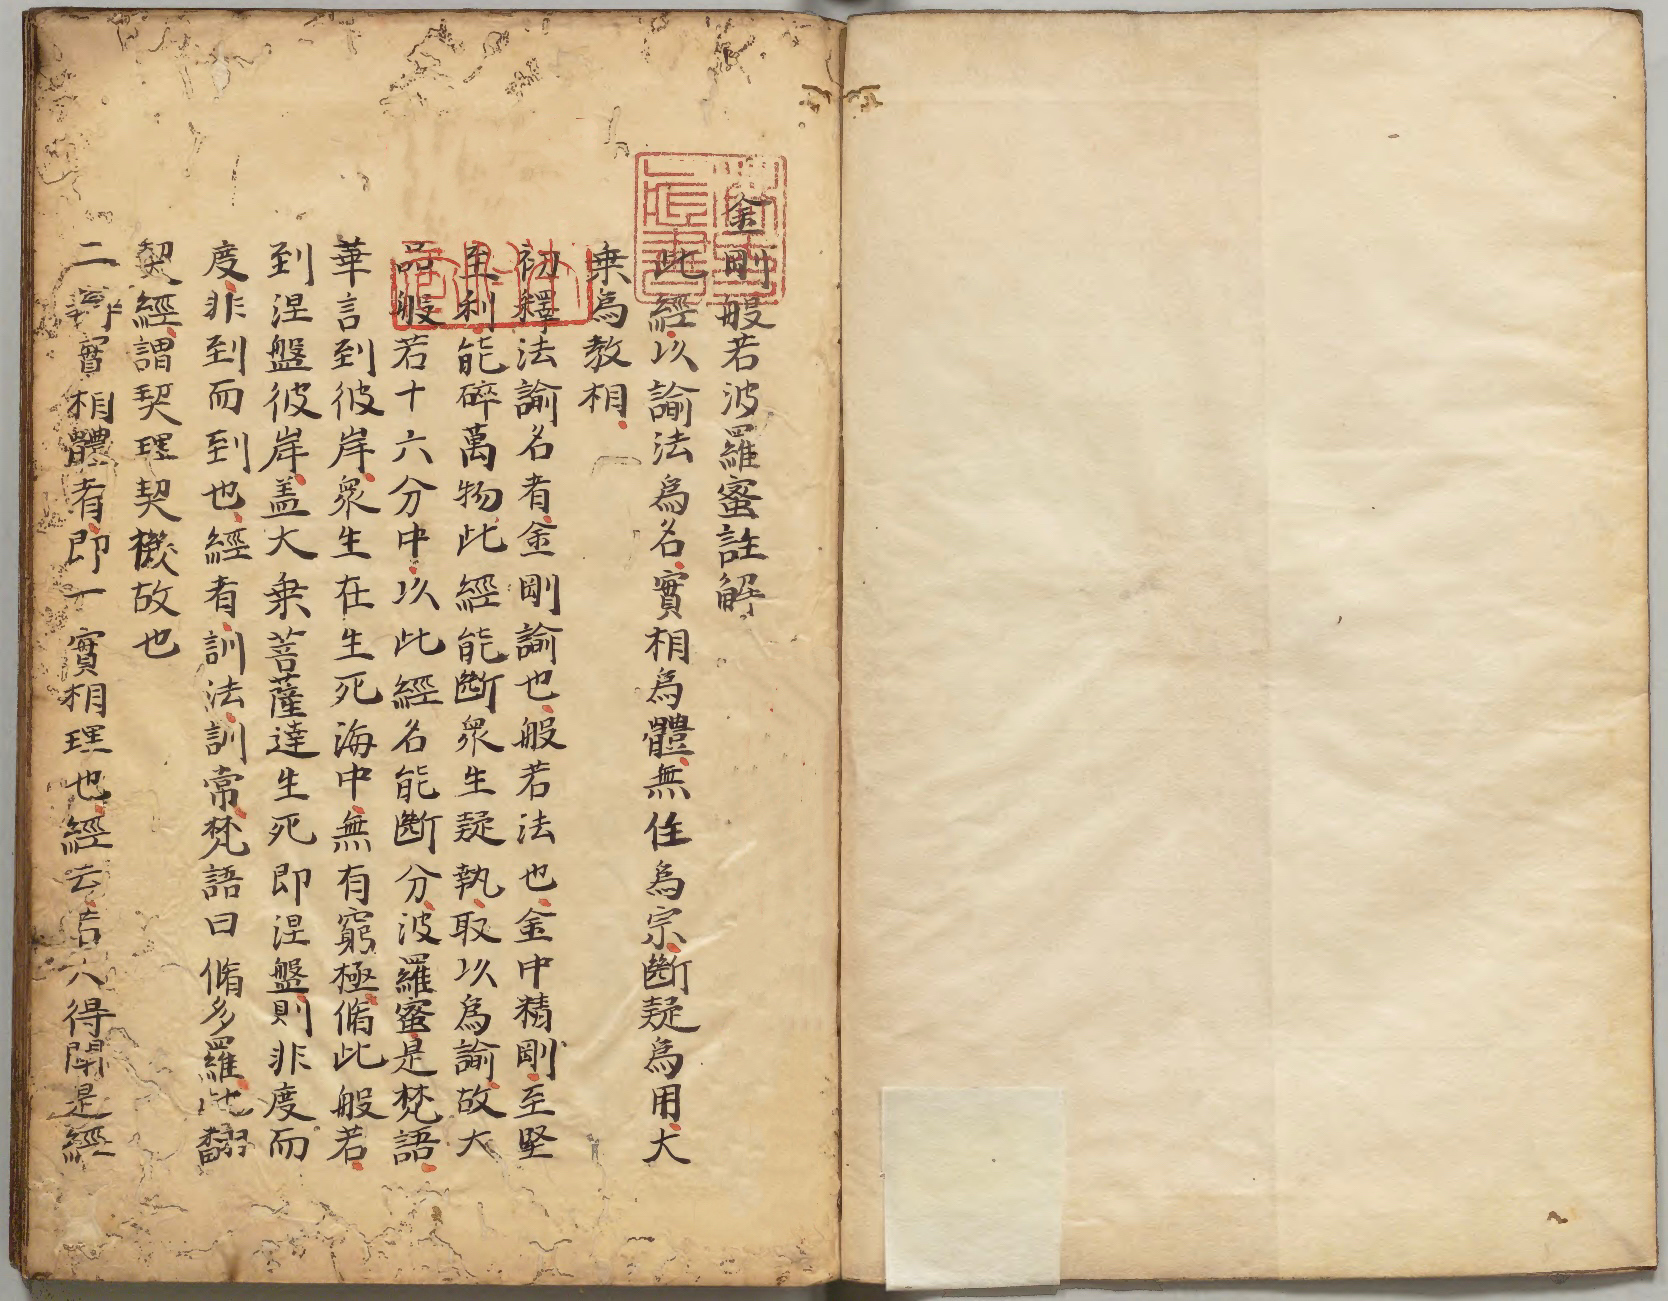 金剛般若波羅蜜註解
此經以諭法爲名實相爲體無住爲宗斷疑爲用大
乗爲教相
初釋法諭名者金剛諭也般若法也金中精剛至堅
至利能碎萬物此經能斷衆生疑執取以爲諭故大
品般若十六分中以此經名能斷分波羅蜜是梵語
華言到彼岸衆生在生死海中無有窮極脩此般若
到涅盤彼岸盖大乗菩薩達生死即涅盤則非度而
度非到而到也經者訓法訓常梵語曰脩多羅此翻
契經謂契理契機故也
二辨實相體者即一實相理也經云若人得聞是經